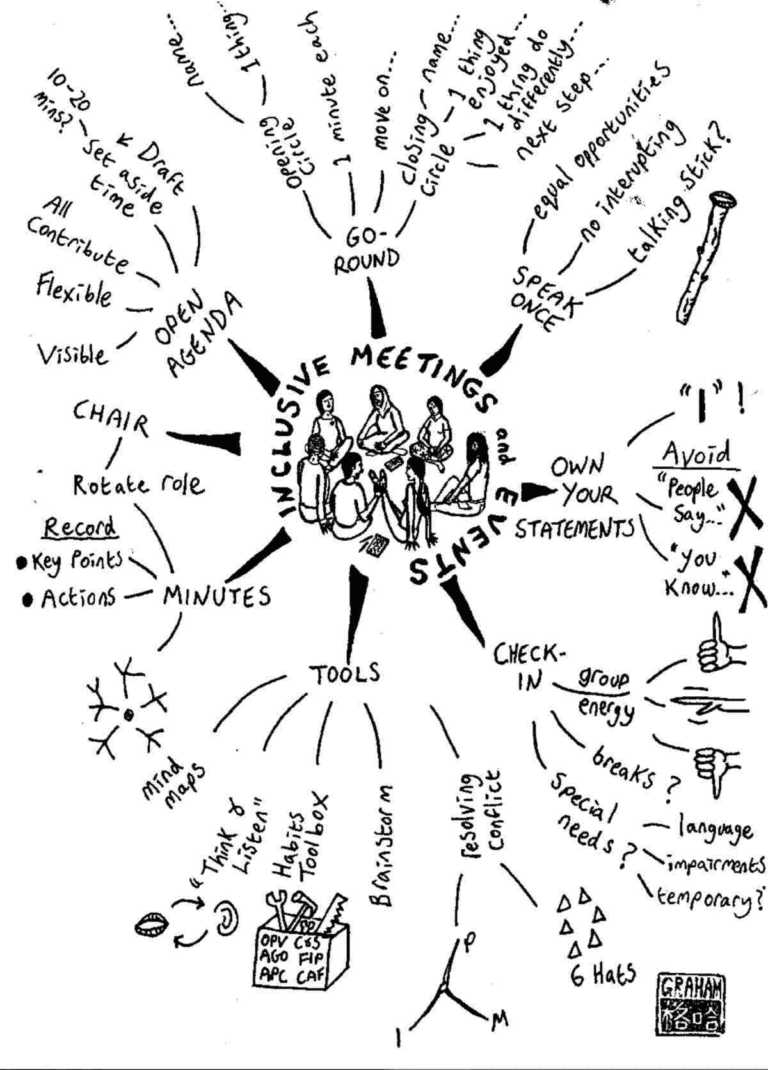 INCLUSIVE MEETINGS and EVENTS
GO-
ROUND
Opening
Circle
name...
1 thing...
1 minute each
move on...
closing
Circle
name...
1 thing
enjoyed...
1 thing do
differently...
next step...
SPEAK
ONCE
equal opportunities
no interupting
talking stick?
OWN
YOUR
STATEMENTS
"I"!
Avoid
"People
Say..."
"You
Know..."
CHECK-
IN
group
energy
breaks?
special
needs?
language
impairments
temporary?
TOOLS
resolving
conflict
P
I
M
6 Hats
Brainstorm
Habits
Toolbox
OPV C&S
AGO FIP
APC CAF
"Think &
Listen"
Mind
maps
MINUTES
Record
• Key Points
• Actions
CHAIR
Rotate role
OPEN
AGENDA
Visible
Flexible
All
Contribute
10-20
mins?
set aside
time
Draft
GRAHAM
格哈